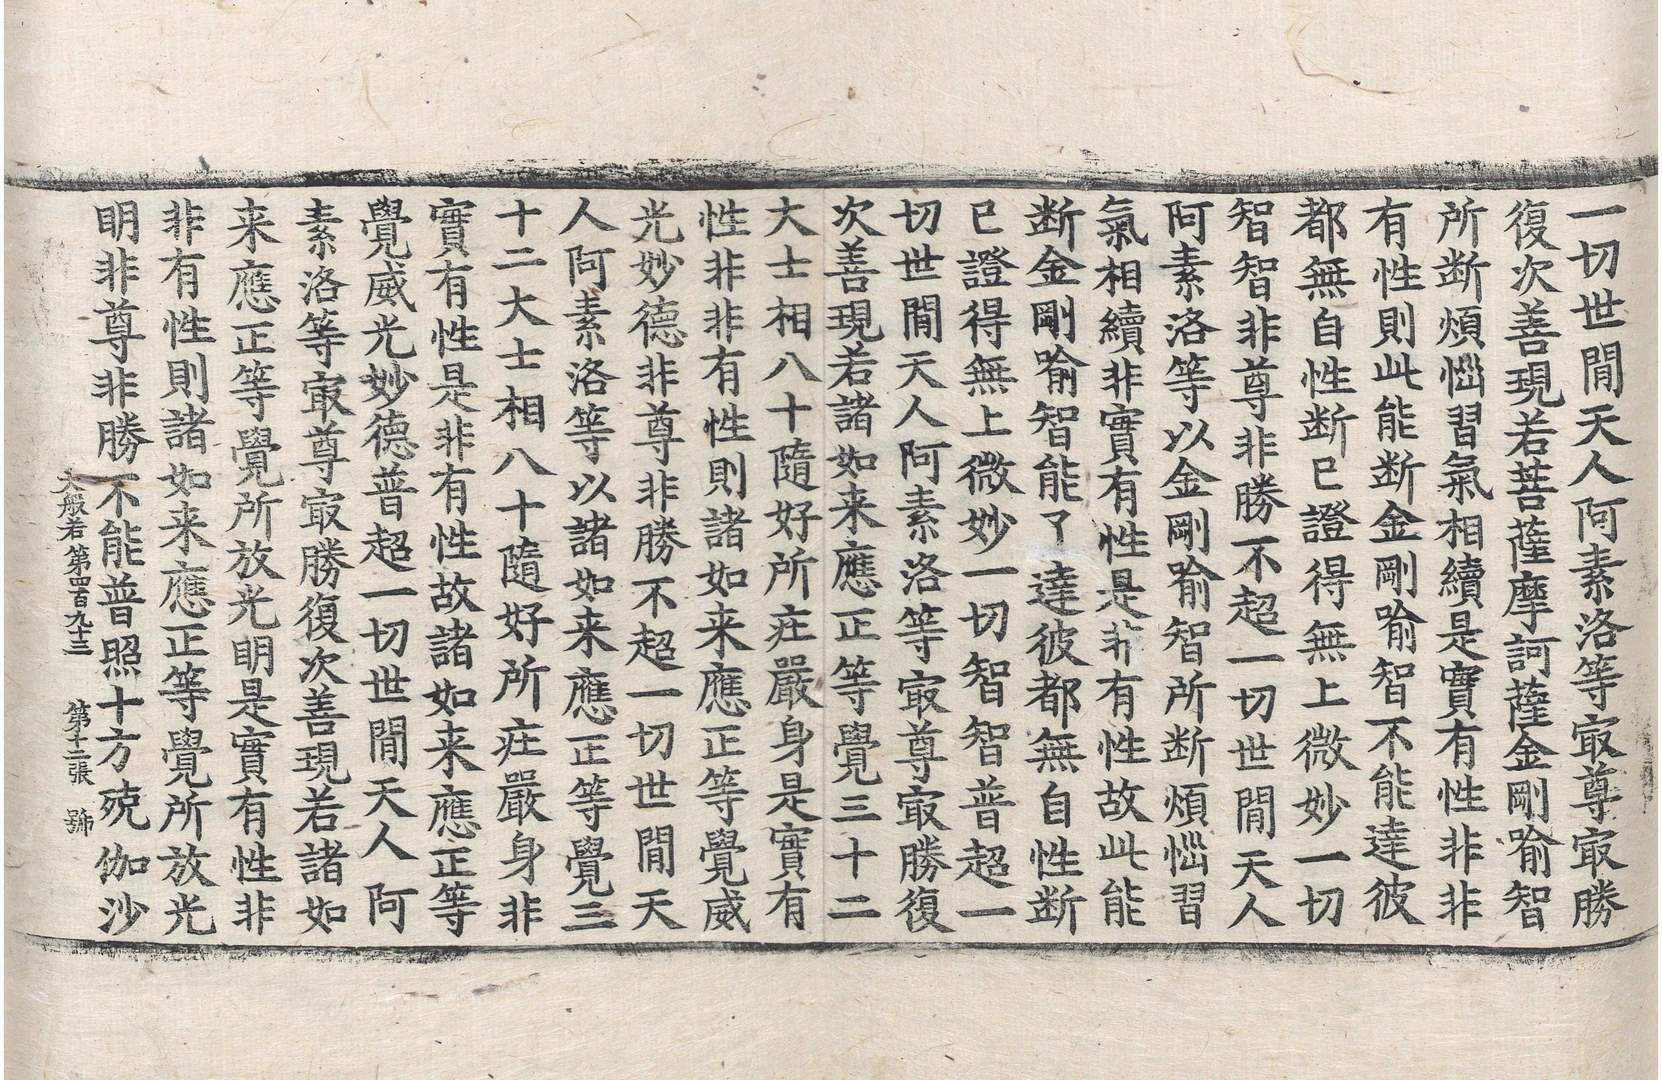 一切世間天人阿素洛等㝡尊㝡勝
復次善現若菩薩摩訶薩金剛喻智
所断煩惱習氣相續是實有性非非
有性則此能断金剛喻智不能達彼
都無自性断已證得無上微妙一切
智智非尊非勝不超一切世間天人
阿素洛等以金剛喻智所断煩惱習
氣相續非實有性是非有性故此能
断金剛喻智能了達彼都無自性断
已證得無上微妙一切智智普超一
切世間天人阿素洛等㝡尊㝡勝復
次善現若諸如来應正等覺三十二
大士相八十隨好所莊嚴身是實有
性非非有性則諸如来應正等覺威
光妙德非尊非勝不超一切世間天
人阿素洛等以諸如来應正等覺三
十二大士相八十隨好所莊嚴身非
實有性是非有性故諸如来應正等
覺威光妙德普超一切世間天人阿
素洛等㝡尊㝡勝復次善現若諸如
来應正等覺所放光明是實有性非
非有性則諸如来應正等覺所放光
明非尊非勝不能普照十方殑伽沙
大般若第四百九十三 第十二張 號